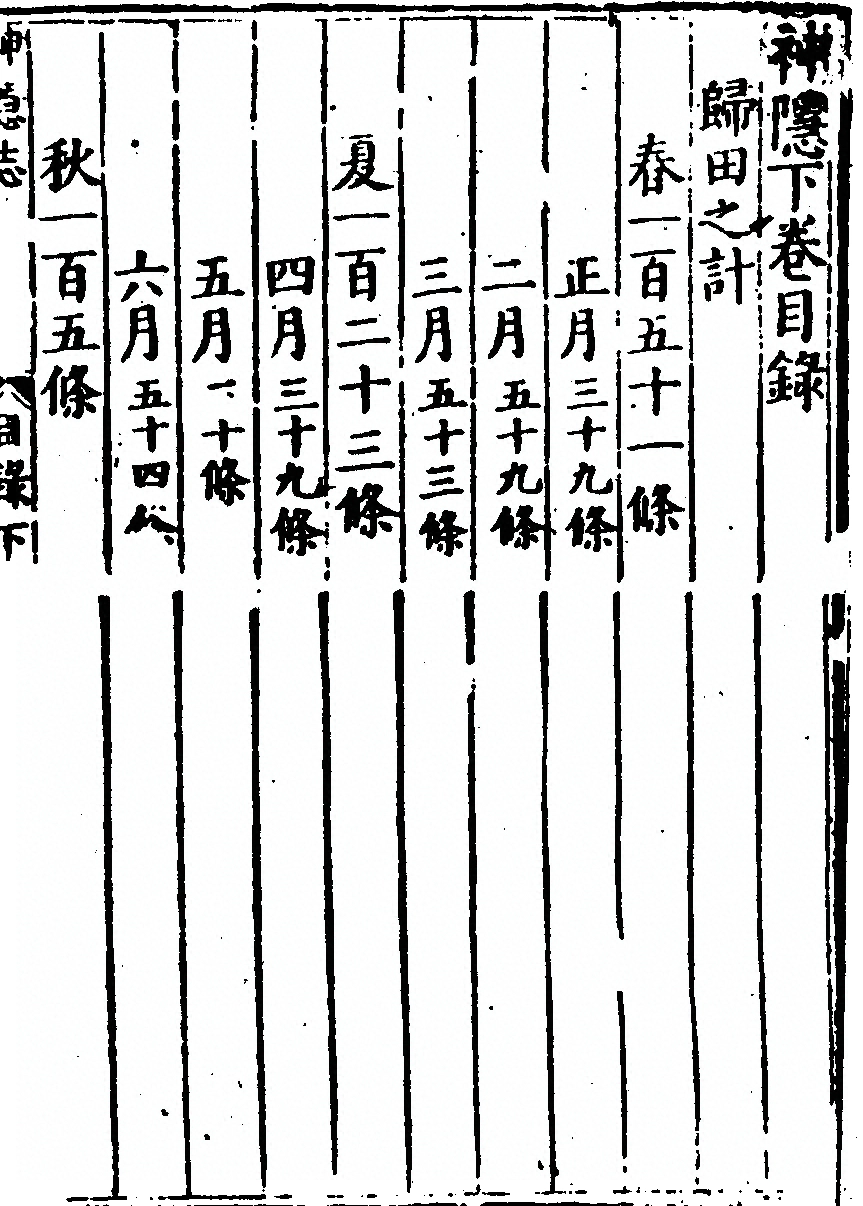 神隱下卷目錄
歸田之計
春一百五十一條
正月三十九條
二月五十九條
三月五十三條
夏一百二十三條
四月三十九條
五月十條
六月五十四
秋一百五條
神隱志 目錄下